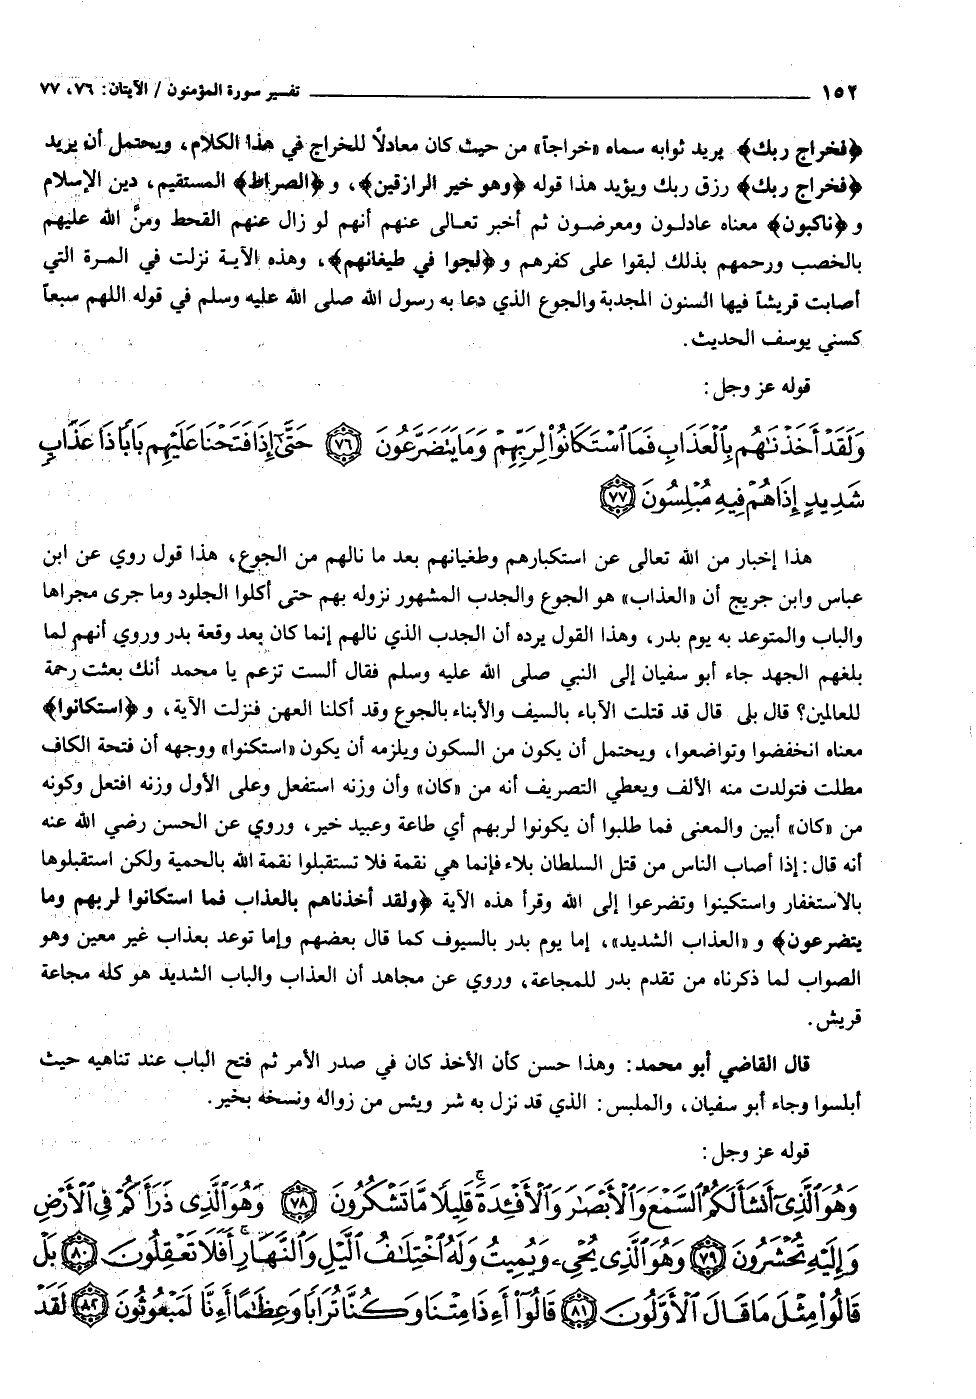 ١٥٢ ــــــــــــــــــــ تفسير سورة المؤمنون / الآيتان: ٧٦، ٧٧
﴿فخراج ربك﴾ يريد ثوابه سماه «خراجاً» من حيث كان معادلاً للخراج في هذا الكلام، ويحتمل أن يزيد
﴿فخراج ربك﴾ رزق ربك ويؤيد هذا قوله ﴿وهو خير الرازقين﴾، و ﴿الصراط﴾ المستقيم، دين الإسلام
و ﴿ناكبون﴾ معناه عادلون ومعرضون ثم أخبر تعالى عنهم أنهم لو زال عنهم القحط ومنَّ الله عليهم
بالخصب ورحمهم بذلك لبقوا على كفرهم و ﴿لجوا في طيغانهم﴾، وهذه الآية نزلت في المرة التي
أصابت قريشاً فيها السنون المجدبة والجوع الذي دعا به رسول الله صلى الله عليه وسلم في قوله اللهم سبعاً
كسني يوسف الحديث.
قوله عز وجل:
وَلَقَدْ أَخَذْنَٰهُم بِٱلْعَذَابِ فَمَا ٱسْتَكَانُوا۟ لِرَبِّهِمْ وَمَا يَتَضَرَّعُونَ ﴿٧٦﴾ حَتَّىٰٓ إِذَا فَتَحْنَا عَلَيْهِم بَابًا ذَا عَذَابٍ
شَدِيدٍ إِذَا هُمْ فِيهِ مُبْلِسُونَ ﴿٧٧﴾
هذا إخبار من الله تعالى عن استكبارهم وطغيانهم بعد ما نالهم من الجوع، هذا قول روي عن ابن
عباس وابن جريج أن «العذاب» هو الجوع والجدب المشهور نزوله بهم حتى أكلوا الجلود وما جرى مجراها
والباب والمتوعد به يوم بدر، وهذا القول يرده أن الجدب الذي نالهم إنما كان بعد وقعة بدر وروي أنهم لما
بلغهم الجهد جاء أبو سفيان إلى النبي صلى الله عليه وسلم فقال ألست تزعم يا محمد أنك بعثت رحمة
للعالمين؟ قال بلى قال قد قتلت الآباء بالسيف والأبناء بالجوع وقد أكلنا العهن فنزلت الآية، و ﴿استكانوا﴾
معناه انخفضوا وتواضعوا، ويحتمل أن يكون من السكون ويلزمه أن يكون «استكنوا» ووجهه أن فتحة الكاف
مطلت فتولدت منه الألف ويعطي التصريف أنه من «كان» وأن وزنه استفعل وعلى الأول وزنه افتعل وكونه
من «كان» أبين والمعنى فما طلبوا أن يكونوا لربهم أي طاعة وعبيد خير، وروي عن الحسن رضي الله عنه
أنه قال: إذا أصاب الناس من قتل السلطان بلاء فإنما هي نقمة فلا تستقبلوا نقمة الله بالحمية ولكن استقبلوها
بالاستغفار واستكينوا وتضرعوا إلى الله وقرأ هذه الآية ﴿ولقد أخذناهم بالعذاب فما استكانوا لربهم وما
يتضرعون﴾ و «العذاب الشديد»، إما يوم بدر بالسيوف كما قال بعضهم وإما توعد بعذاب غير معين وهو
الصواب لما ذكرناه من تقدم بدر للمجاعة، وروي عن مجاهد أن العذاب والباب الشديد هو كله مجاعة
قريش.
قال القاضي أبو محمد: وهذا حسن كأن الأخذ كان في صدر الأمر ثم فتح الباب عند تناهيه حيث
أبلسوا وجاء أبو سفيان، والملبس: الذي قد نزل به شر ويئس من زواله ونسخه بخير.
قوله عز وجل:
وَهُوَ ٱلَّذِىٓ أَنشَأَ لَكُمُ ٱلسَّمْعَ وَٱلْأَبْصَٰرَ وَٱلْأَفْـِٔدَةَ ۚ قَلِيلًا مَّا تَشْكُرُونَ ﴿٧٨﴾ وَهُوَ ٱلَّذِى ذَرَأَكُمْ فِى ٱلْأَرْضِ
وَإِلَيْهِ تُحْشَرُونَ ﴿٧٩﴾ وَهُوَ ٱلَّذِى يُحْىِۦ وَيُمِيتُ وَلَهُ ٱخْتِلَٰفُ ٱلَّيْلِ وَٱلنَّهَارِ ۚ أَفَلَا تَعْقِلُونَ ﴿٨٠﴾ بَلْ
قَالُوا۟ مِثْلَ مَا قَالَ ٱلْأَوَّلُونَ ﴿٨١﴾ قَالُوٓا۟ أَءِذَا مِتْنَا وَكُنَّا تُرَابًا وَعِظَٰمًا أَءِنَّا لَمَبْعُوثُونَ ﴿٨٢﴾ لَقَدْ